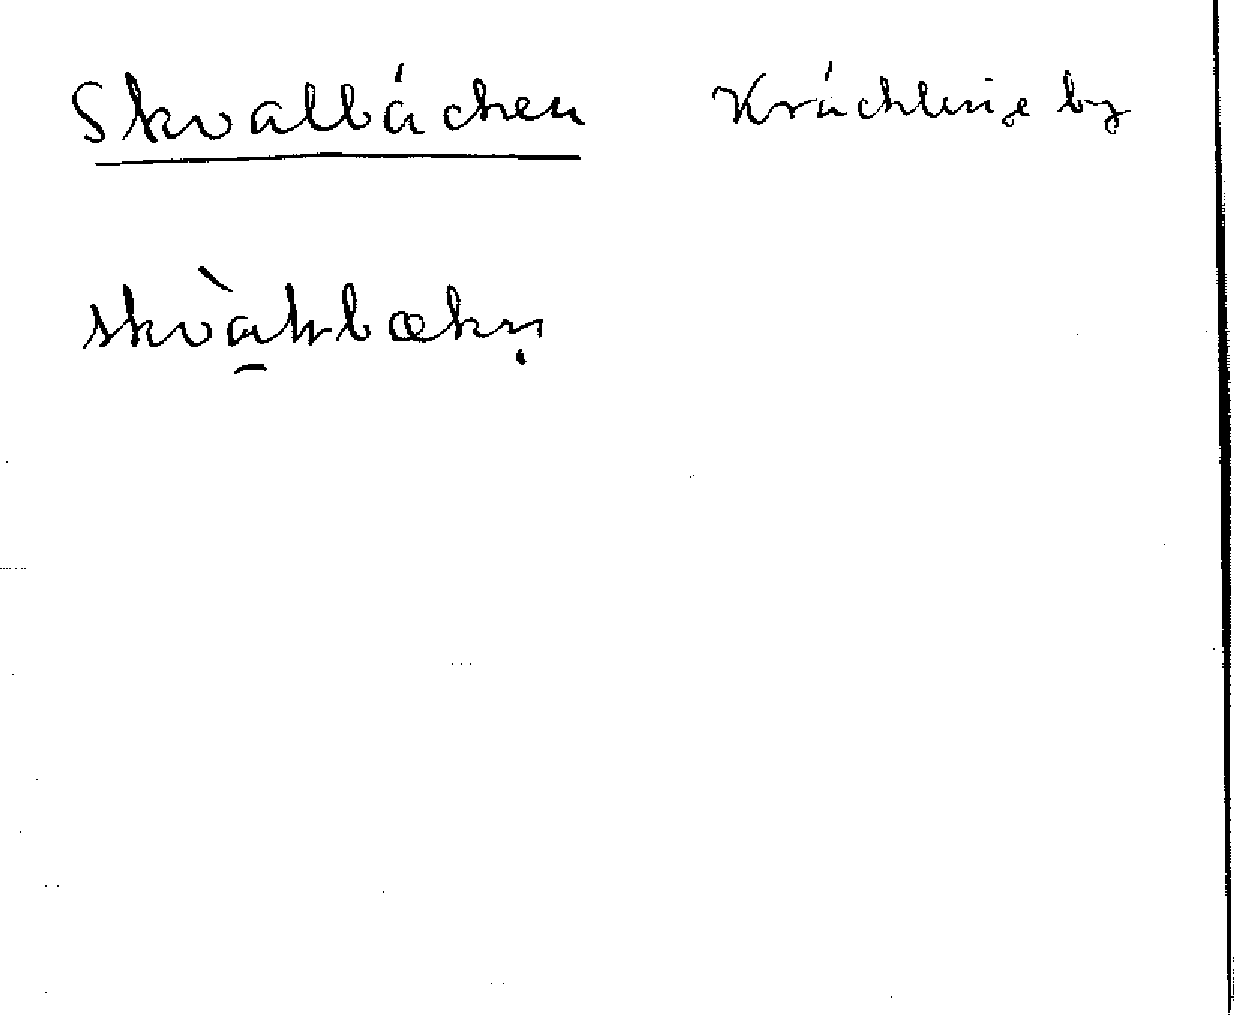 Skvalbáchen Kráchlinge by
skvàlbækṇ